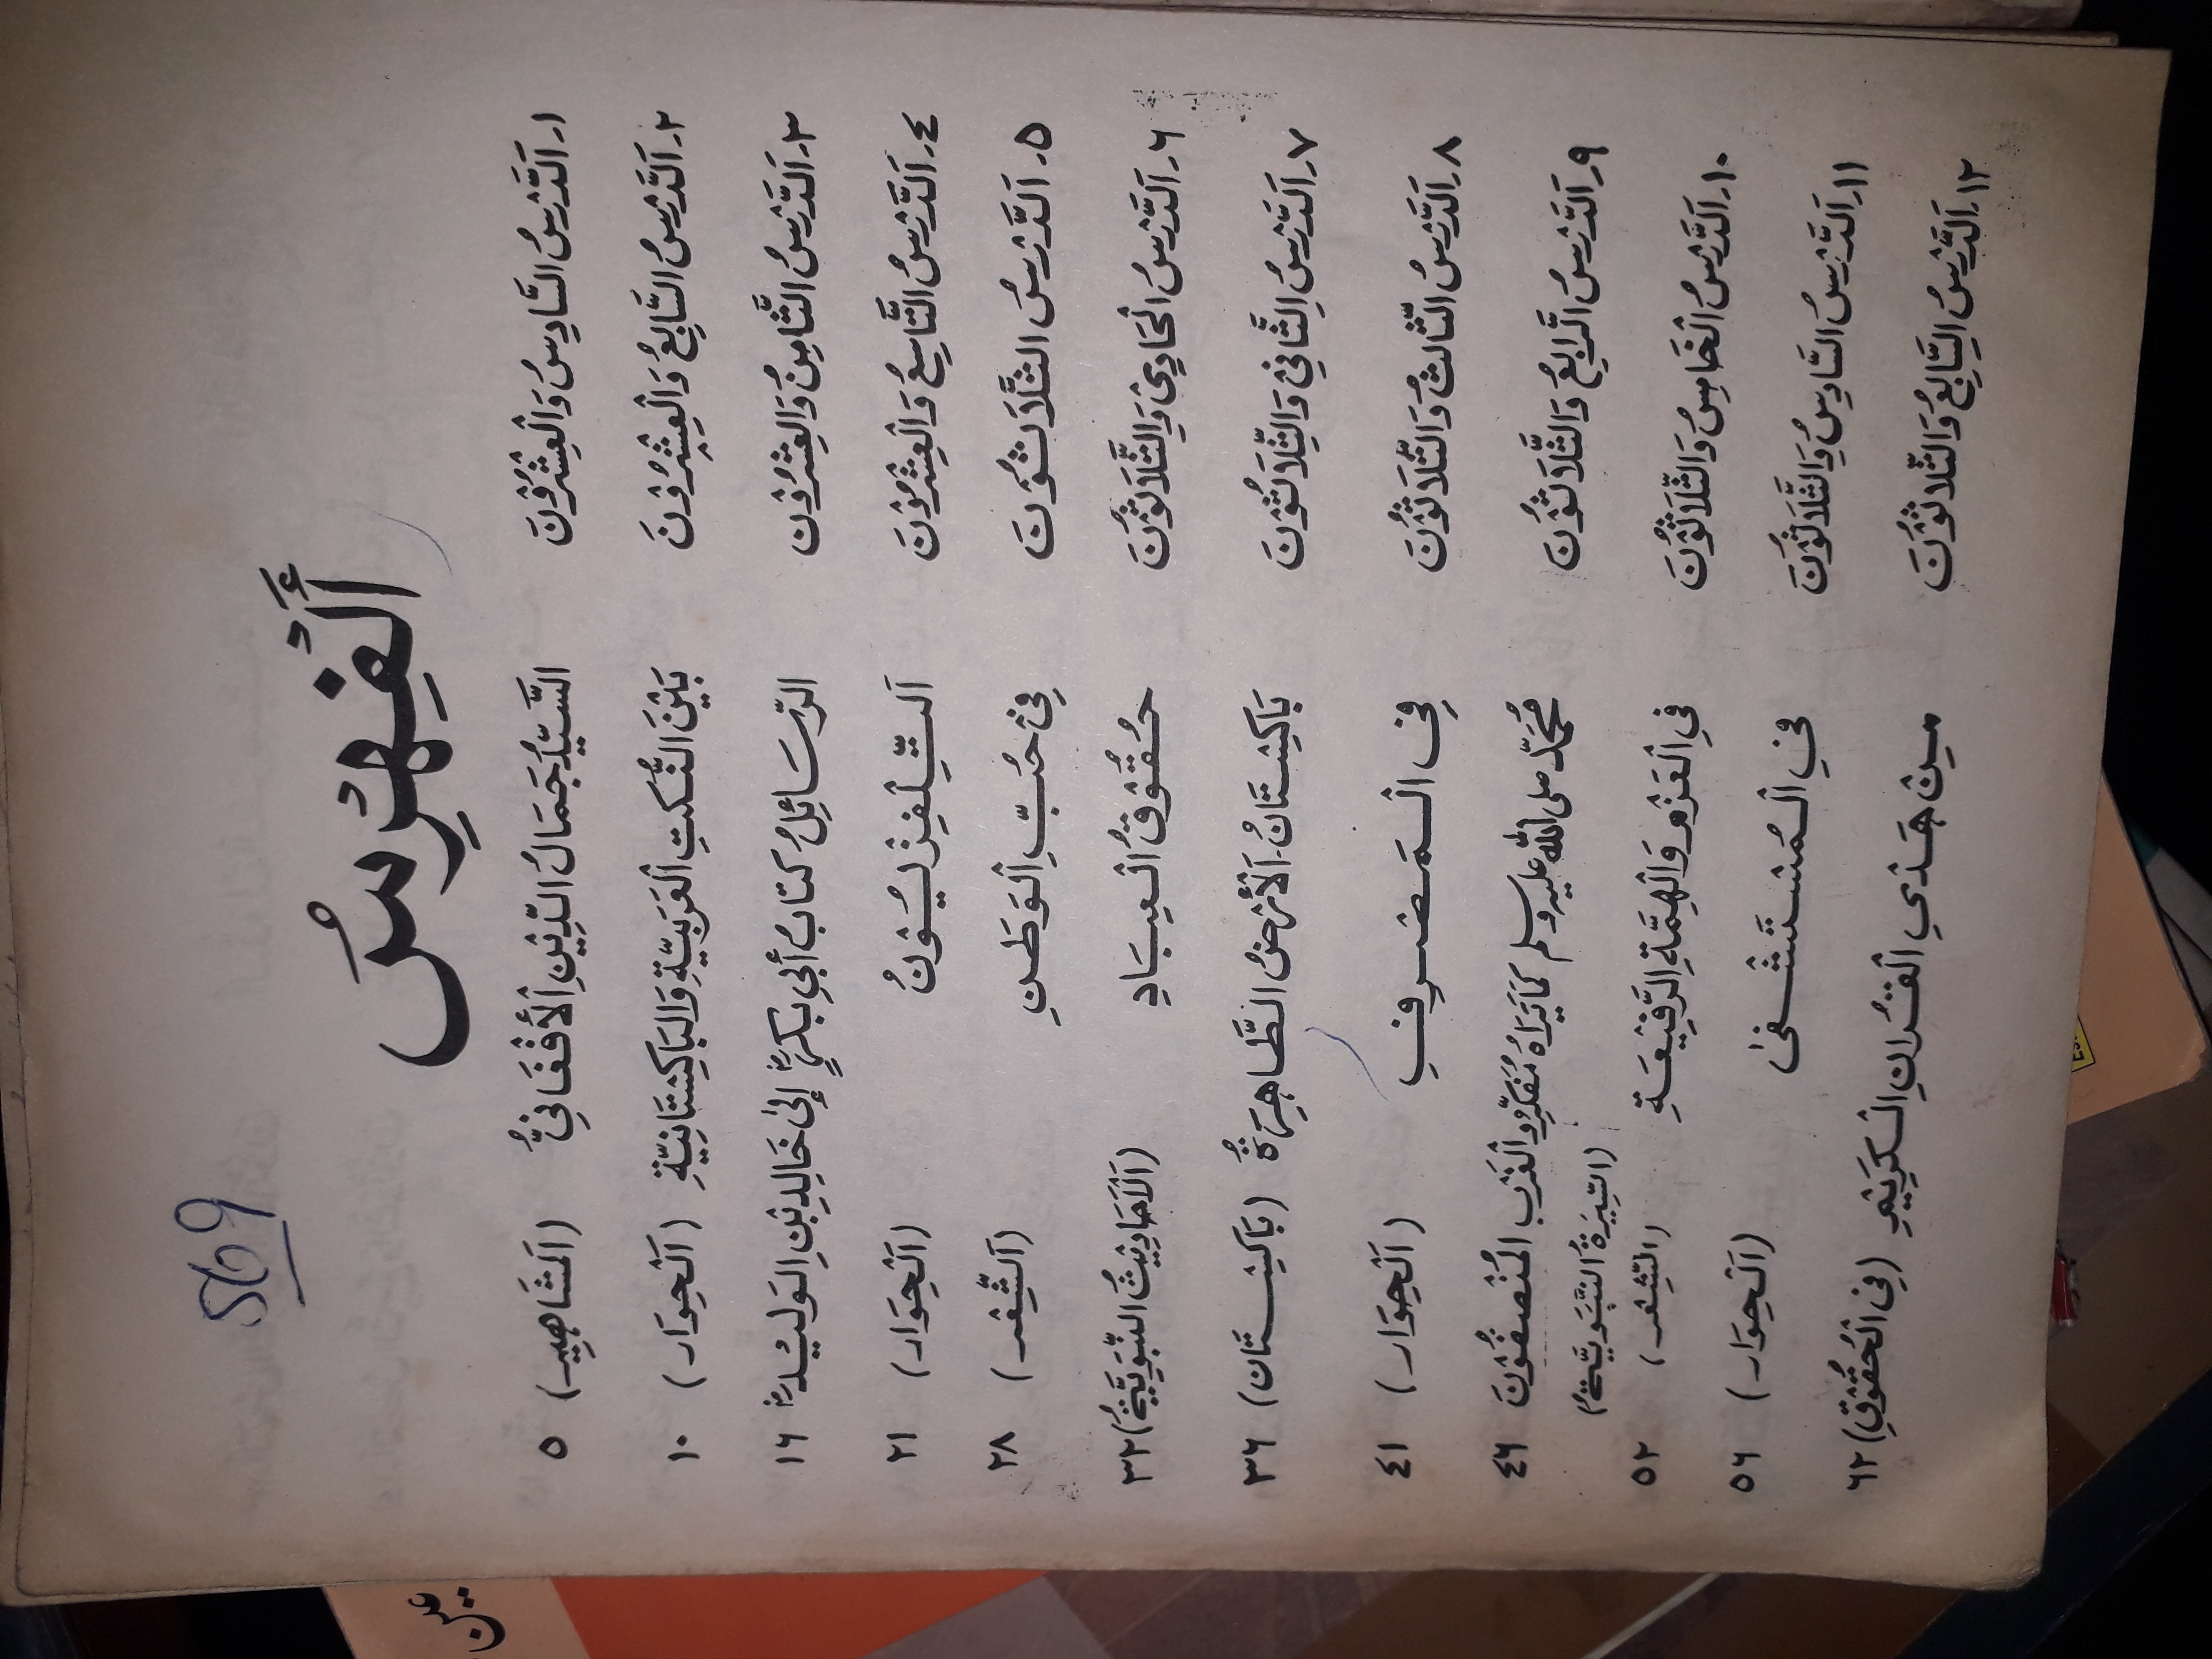 569
أَلْفِهْرِسُ
١۔ اَلدَّرْسُ السَّادِسُ وَالْعِشْرُوْنَ السَّيِّدُ جَمَالُ الدِّيْنِ الْأَفْغَانِيُّ (اَلْمَشَاهِيْر) ٥
٢۔ اَلدَّرْسُ السَّابِعُ وَالْعِشْرُوْنَ بَيْنَ النُّكَتِ الْعَرَبِيَّةِ وَالْبَاكِسْتَانِيَّةِ (اَلْحِوَار) ١٠
٣۔ اَلدَّرْسُ الثَّامِنُ وَالْعِشْرُوْن الرَّسَائِلُ كتابُ أبي بكرٍؓ إلىٰ خَالِدِ بْنِ الوَلِيْدؓ ١٦
٤۔ اَلدَّرْسُ التَّاسِعُ وَالْعِشْرُوْنَ اَلتِّلِفِزْيُوْنُ (اَلْحِوَار) ٢١
٥۔ اَلدَّرْسُ الثَّلَاثُوْنَ فِيْ حُبِّ الْوَطَنِ (اَلشِّعْر) ٢٨
٦۔ اَلدَّرْسُ الْحَادِيْ وَالثَّلَاثُوْنَ حُقُوْقُ الْعِبَادِ (اَلْأَحَادِيْثُ النَّبَوِيَّةُ) ٣٢
٧۔ اَلدَّرْسُ الثَّانِيْ وَالثَّلَاثُوْنَ بَاكِسْتَانُ۔ اَلْأَرْضُ الطَّاهِرَةُ (بَاكِسْتَان) ٣٦
٨۔ اَلدَّرْسُ الثَّالِثُ وَالثَّلَاثُوْنَ فِى الْمَصْرِفِ (اَلْحِوَار) ٤١
٩۔ اَلدَّرْسُ الرَّابِعُ وَالثَّلَاثُوْنَ مُحَمَّدٌ صلى الله عليه وسلم كَمَا يَرَاهُ مُفَكِّرُو الْغَرْبِ الْمُنْصِفُوْنَ ٤٦
(السِّيْرَةُ النَّبَوِيَّةُ)
١٠۔ اَلدَّرْسُ الْخَامِسُ وَالثَّلَاثُوْنَ فِي الْغَزْوِ وَالْهِمَّةِ الرَّفِيْعَةِ (الشِّعْر) ٥٢
١١۔ اَلدَّرْسُ السَّادِسُ وَالثَّلَاثُوْنَ فِي الْمُسْتَشْفىٰ (اَلْحِوَار) ٥٦
١٢۔ اَلدَّرْسُ السَّابِعُ وَالثَّلَاثُوْنَ مِنْ هَدْيِ الْقُرْاٰنِ الْكَرِيْمِ (فِى الْحُقُوْقِ) ٦٢